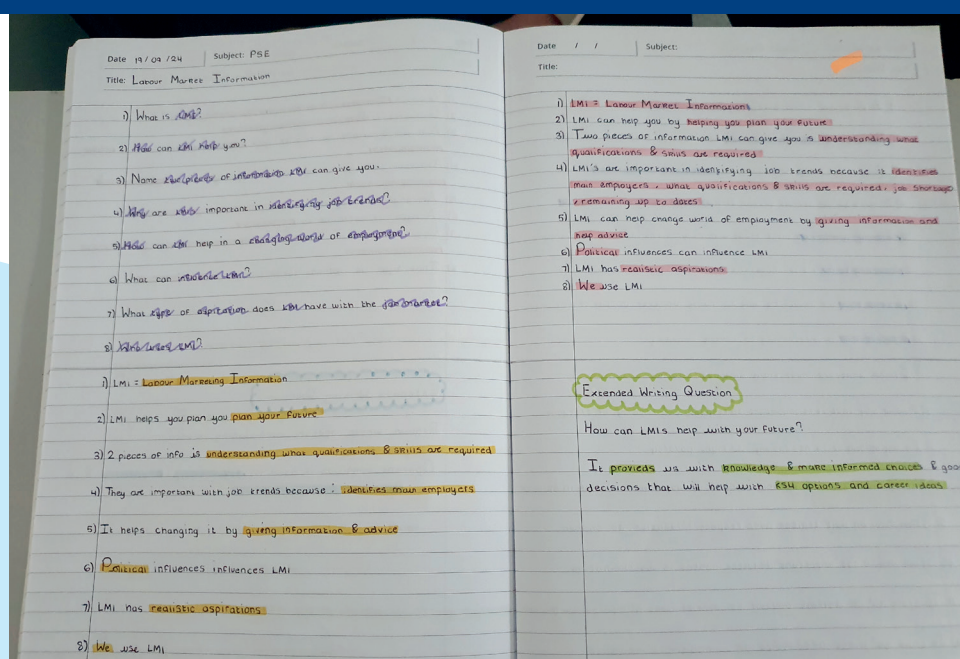 Date 19/09/24 Subject: PSE
Title: Labour Market Information
1) What is LMI?
2) How can LMI help you?
3) Name two pieces of information LMI can give you.
4) Why are LMIs important in identifying job trends?
5) How can LMI help in a changing world of employment?
6) What can influence LMI?
7) What type of aspiration does LMI have with the job market?
8) Who uses LMI?
1) LMI = Labour Marketing Information
2) LMI helps you plan you plan your future
3) 2 pieces of info is understanding what qualifications & skills are required
4) They are important with job trends because : identifies main employers
5) It helps changing it by giving information & advice
6) Political influences influences LMI
7) LMI has realistic aspirations
8) We use LMI
Date / / Subject:
Title:
1) LMI = Labour Market Information
2) LMI can help you by helping you plan your future
3) Two pieces of information LMI can give you is understanding what
qualifications & skills are required
4) LMI's are important in identifying job trends because it identifies
main employers, what qualifications & skills are required, job shortage
& remaining up to dates
5) LMI can help change world of employment by giving information and
help advice
6) Political influences can influence LMI
7) LMI has realistic aspirations
8) We use LMI
Extended Writing Question
How can LMIs help with your future?
It provieds us with knowledge & make informed choices & good
decisions that will help with KS4 options and career ideas